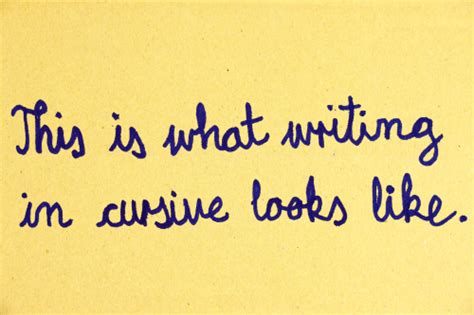 This is what writing
in cursive looks like.